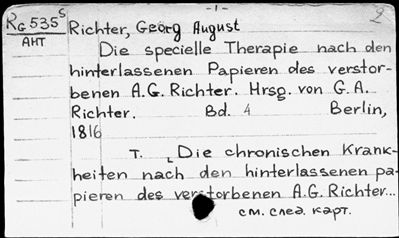 -1-
RG 535 S
2
Richter, Georg August
АНТ
Die specielle Therapie nach den
hinterlassenen Papieren des verstor-
benen A.G. Richter. Hrsg. von G.A.
Richter. Bd. 4 Berlin,
1816
T. Die chronischen Krank-
heiten nach den hinterlassenen pa-
pieren des verstorbenen A.G. Richter...
см. след. карт.